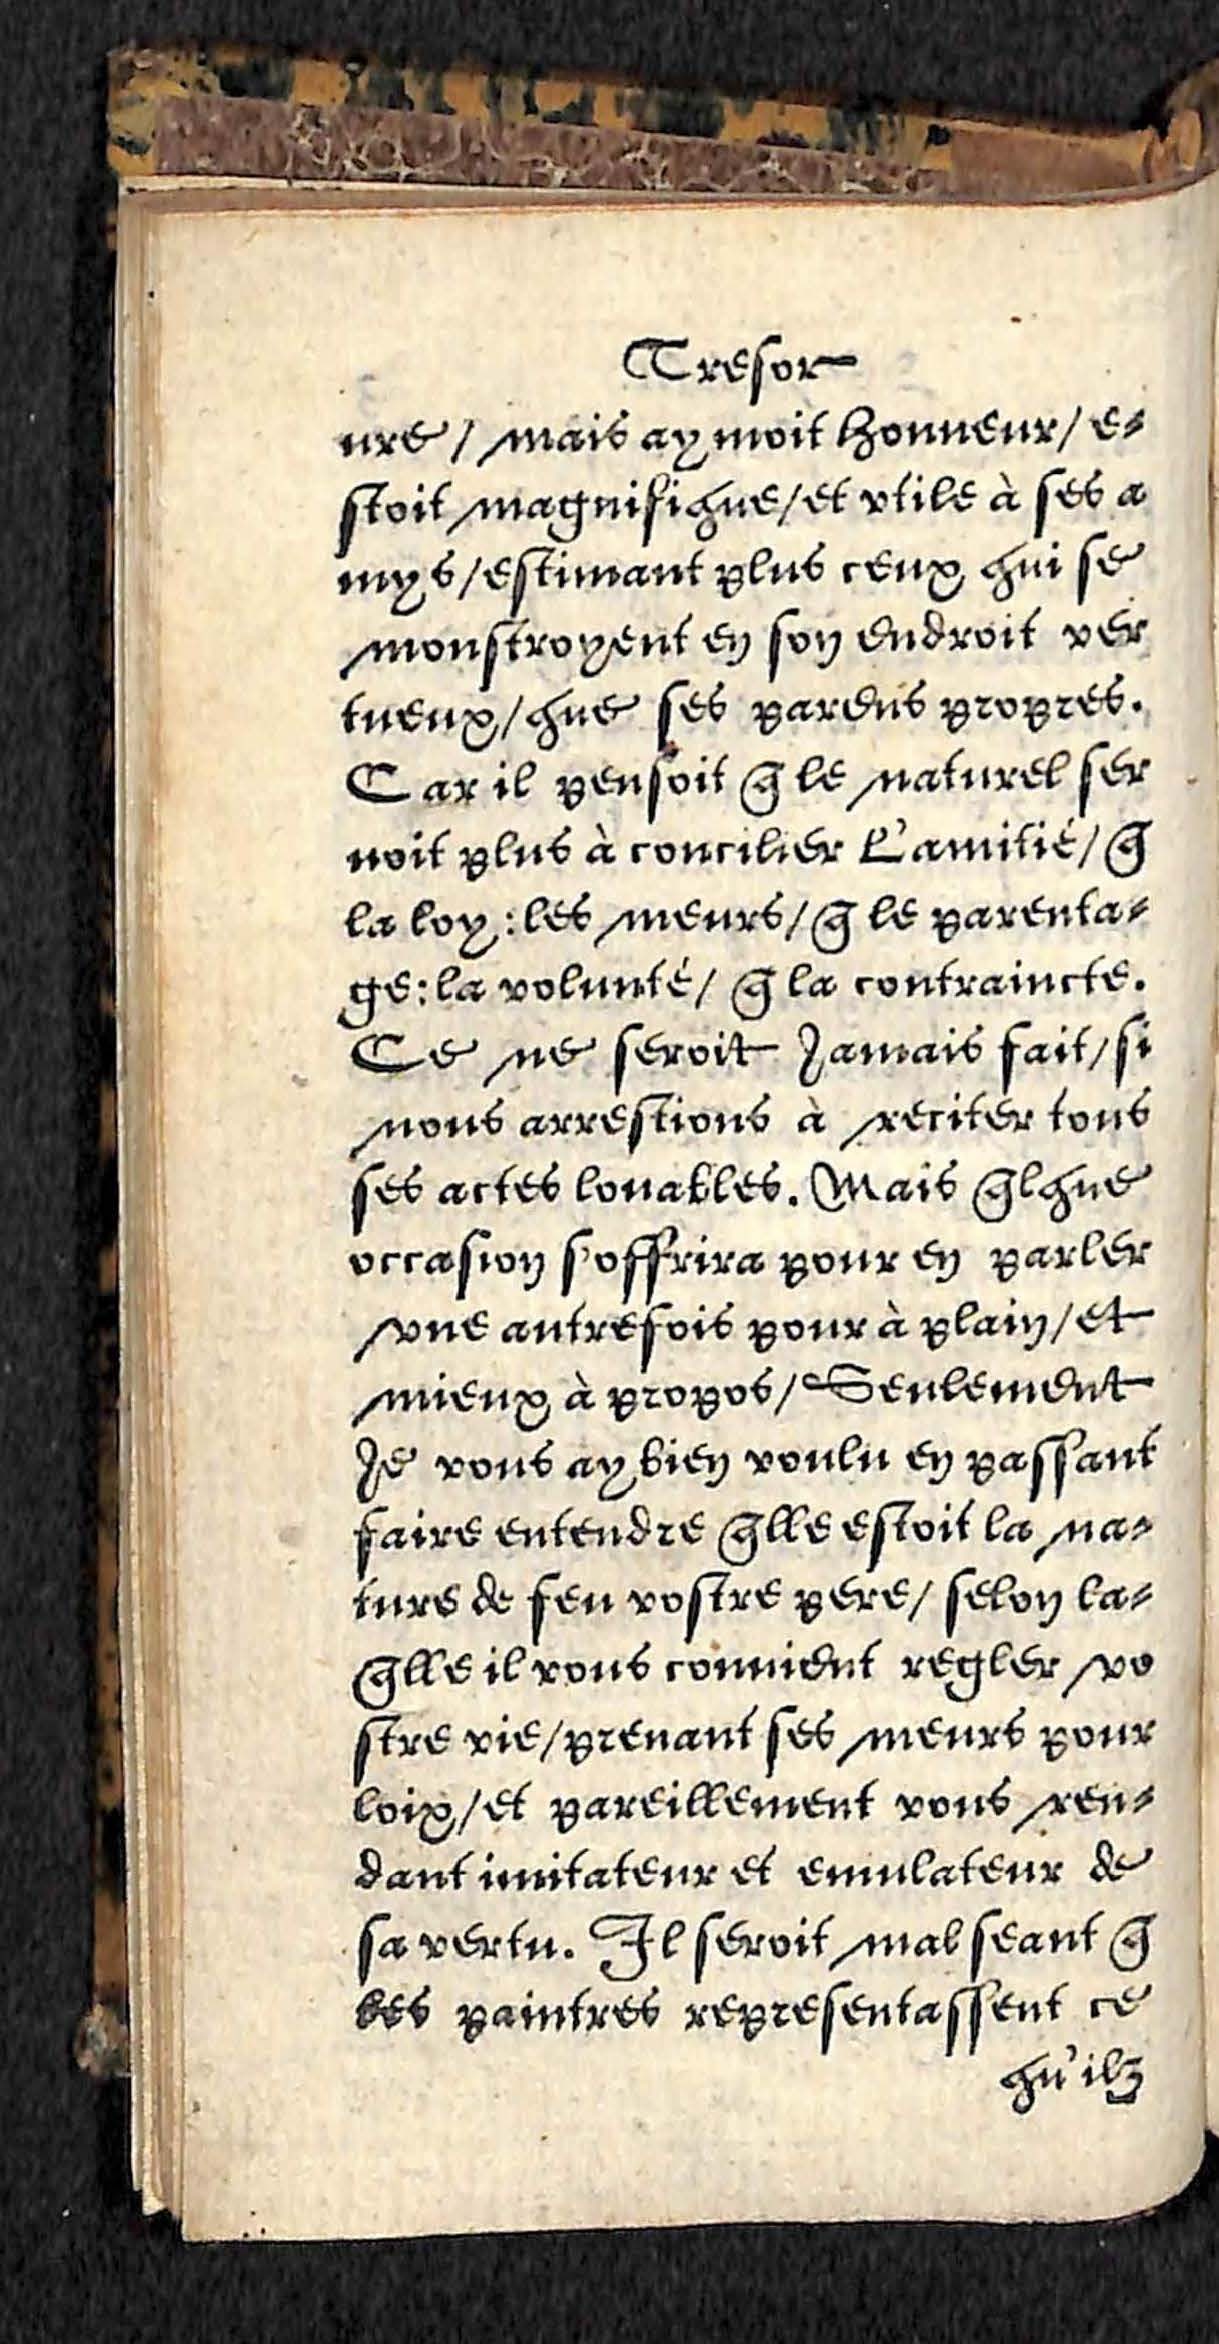 Tresor
ure / mais aymoit honneur / e-
stoit magnifique / et vtile à ses a
mys / estimant plus ceux qui se
monstroyent en son endroit ver
tueux / que ses parens propres.
Car il pensoit q̃ le naturel ser
uoit plus à concilier l'amitié / q̃
la loy : les meurs / q̃ le parenta-
ge : la volunté / q̃ la contraincte.
Ce ne seroit Jamais fait / si
nous arrestions à reciter tous
ses actes louables. Mais q̃lque
occasion s'offrira pour en parler
vne autrefois pour à plain / et
mieux à propos / Seulement
Je vous ay bien voulu en passant
faire entendre q̃lle estoit la na-
ture de feu vostre pere / selon la-
q̃lle il vous conuient regler vo
stre vie / prenant ses meurs pour
loix / et pareillement vous ren-
dant imitateur et emulateur de
sa vertu. Il seroit mal seant q̃
les paintres representassent ce
qu'ilz